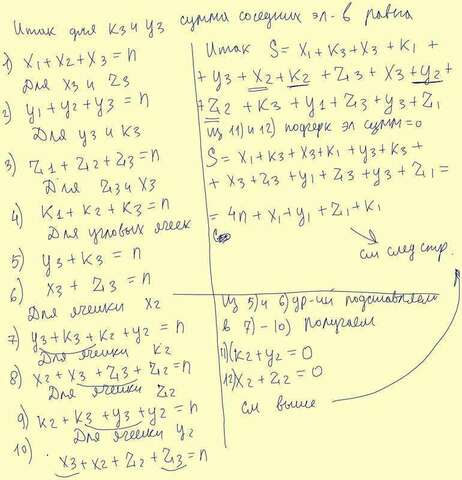 Итак для K3 и y3 сумма соседних эл-в равна
1) x1 + x2 + x3 = n
Для x3 и Z3
2) y1 + y2 + y3 = n
Для y3 и K3
3) Z1 + Z2 + Z3 = n
Для Z3 и X3
4) K1 + K2 + K3 = n
Для угловых ячеек
5) y3 + K3 = n
6) x3 + Z3 = n
Для ячейки x2
7) y3 + K3 + K2 + y2 = n
Для ячейки K2
8) x2 + x3 + Z3 + Z2 = n
Для ячейки Z2
9) K2 + K3 + y3 + y2 = n
Для ячейки y2
10) x3 + x2 + Z2 + Z3 = n
Итак S = x1 + K3 + x3 + K1 +
+ y3 + x2 + K2 + Z3 + x3 + y2 +
+ Z2 + K3 + y1 + Z3 + y3 + Z1
из 11) и 12) подчерк эл сумм = 0
S = x1 + K3 + x3 + K1 + y3 + K3 +
+ x3 + Z3 + y1 + Z3 + y3 + Z1 =
= 4n + x1 + y1 + Z1 + K1
см след стр.
Из 5) и 6) ур-ий подставляем
в 7) - 10) получаем
11) K2 + y2 = 0
12) x2 + Z2 = 0
см выше